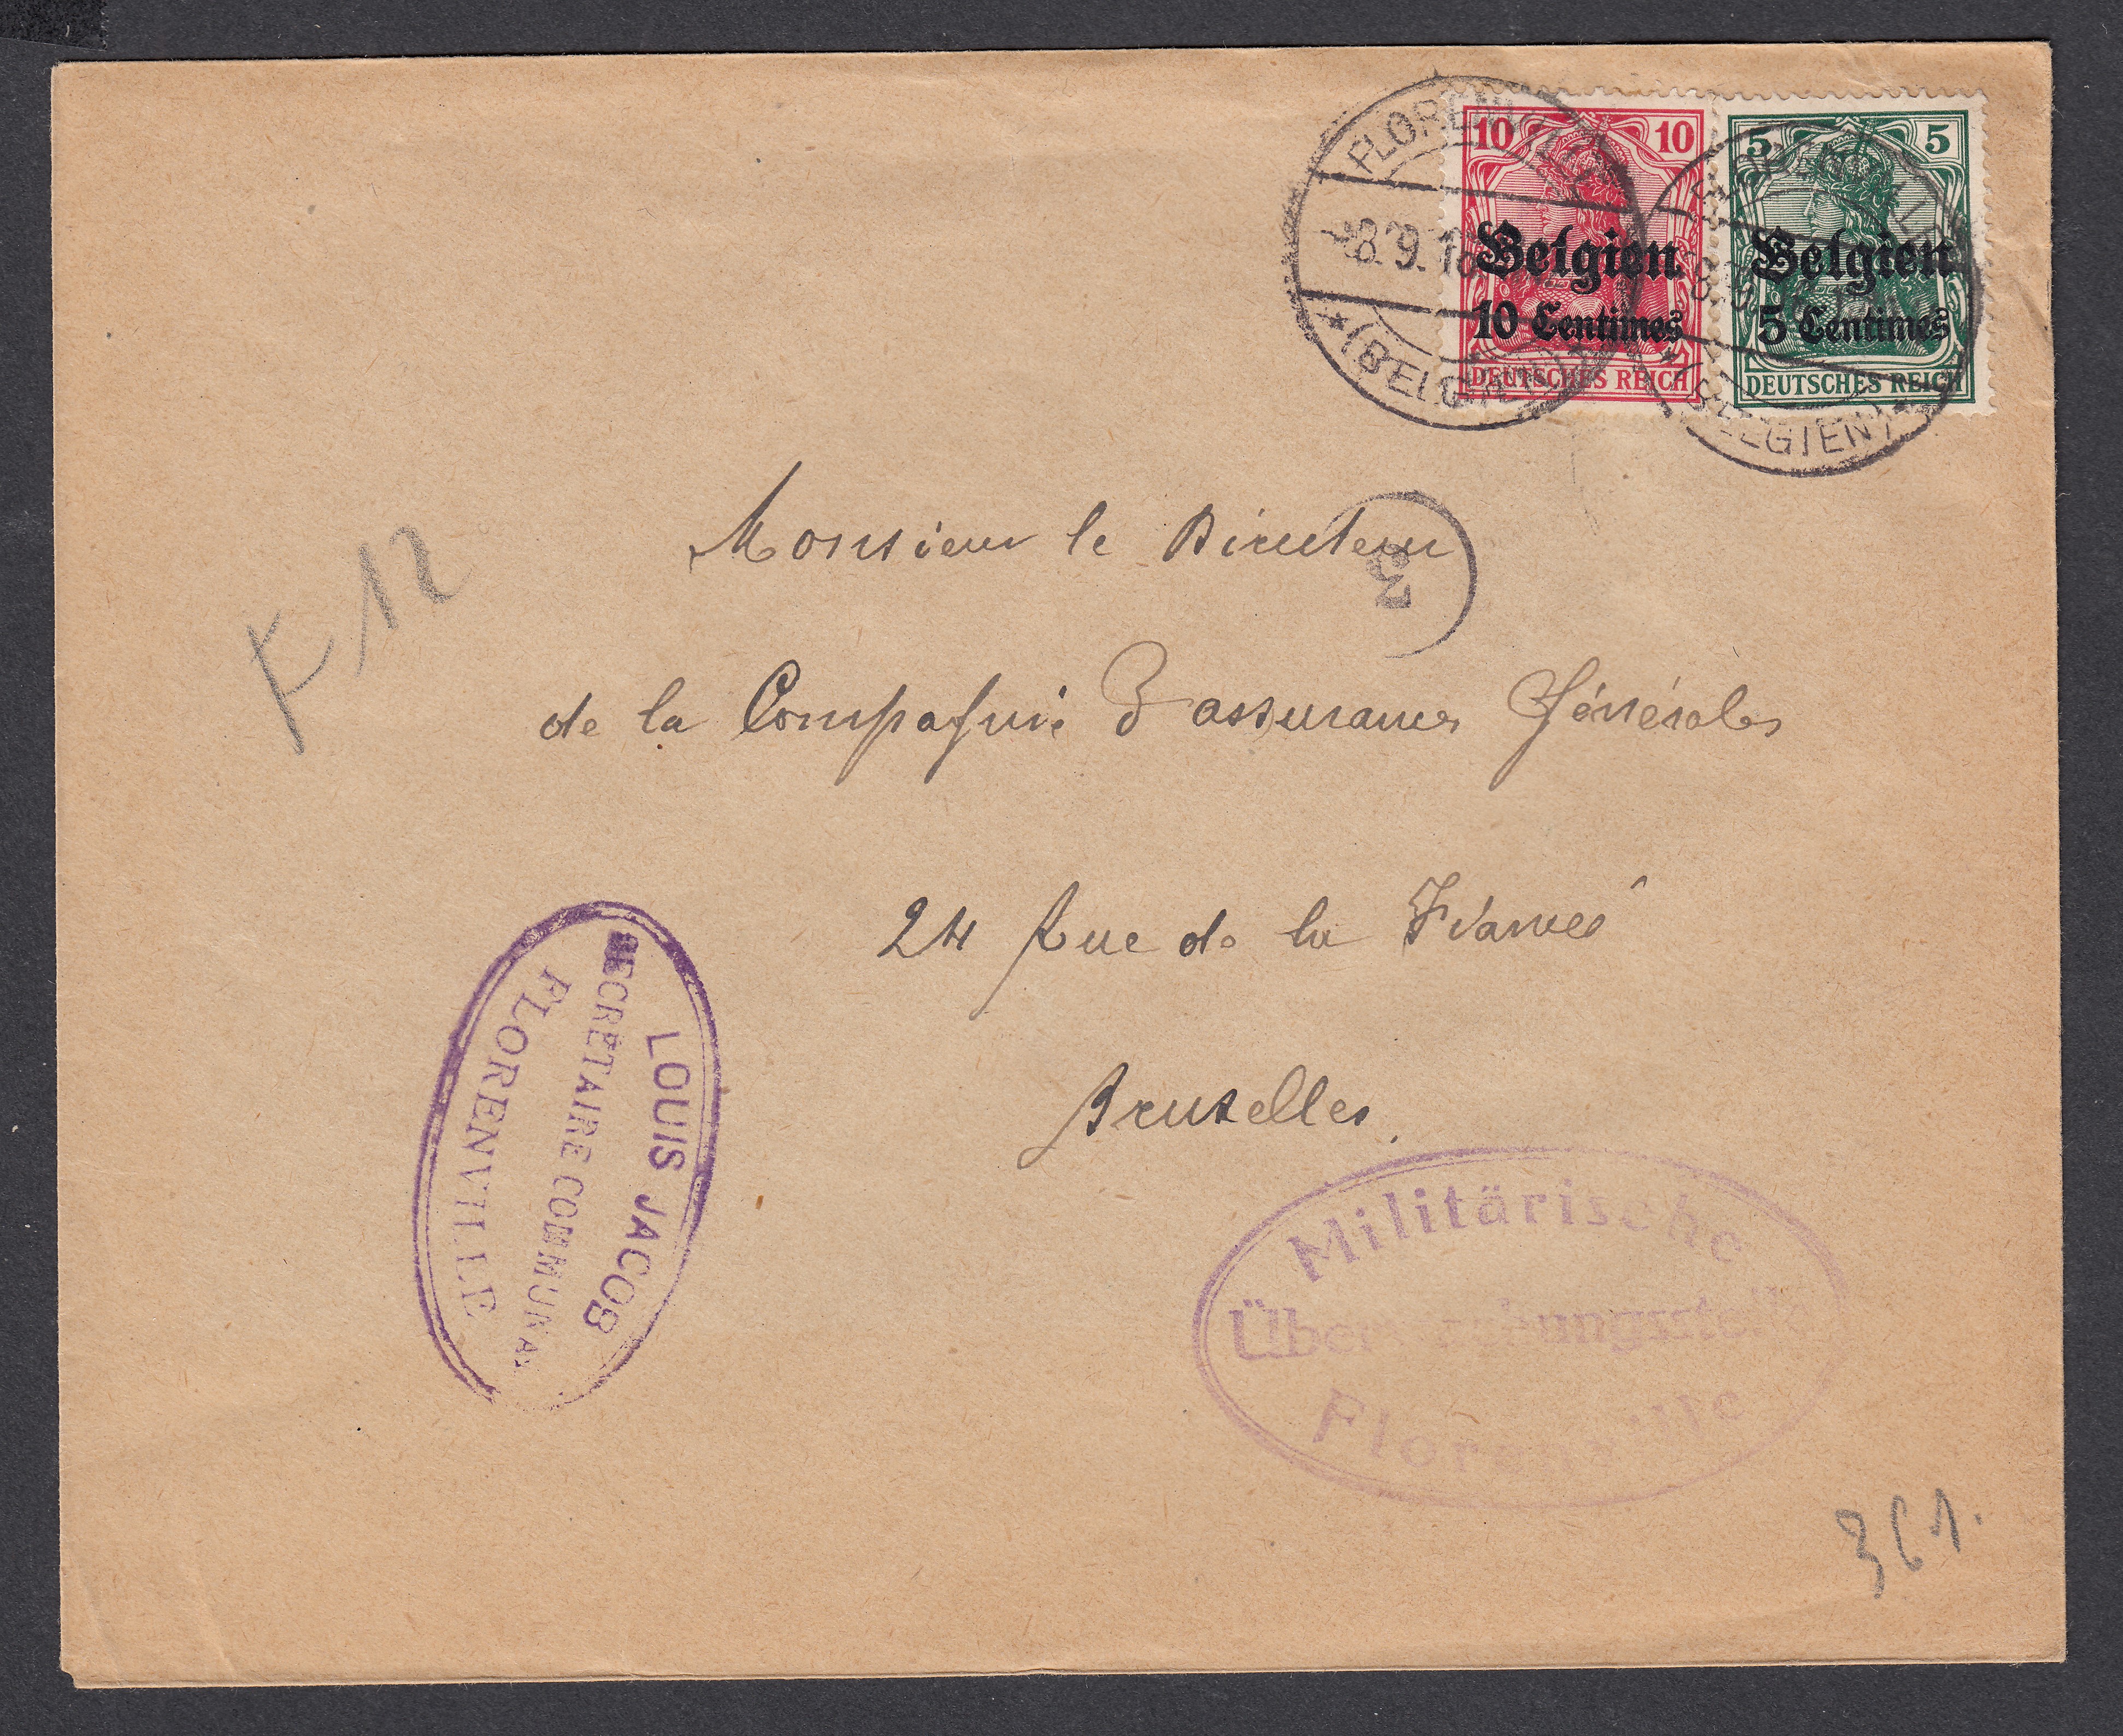 FLORENVILLE
8.9.16
★ (BELGIEN) ★
10 10
Belgien
10 Centimes
DEUTSCHES REICH
5 5
Belgien
5 Centimes
DEUTSCHES REICH
FLORENVILLE
(BELGIEN) ★
Monsieur le Directeur
de la Compagnie D'assurances Générales
24 Rue de la Fiancée
Bruxelles.
F 12
LOUIS JACOB
SECRÉTAIRE COMMUNAL
FLORENVILLE
Militärische
Überwachungsstelle
Florenville
361.